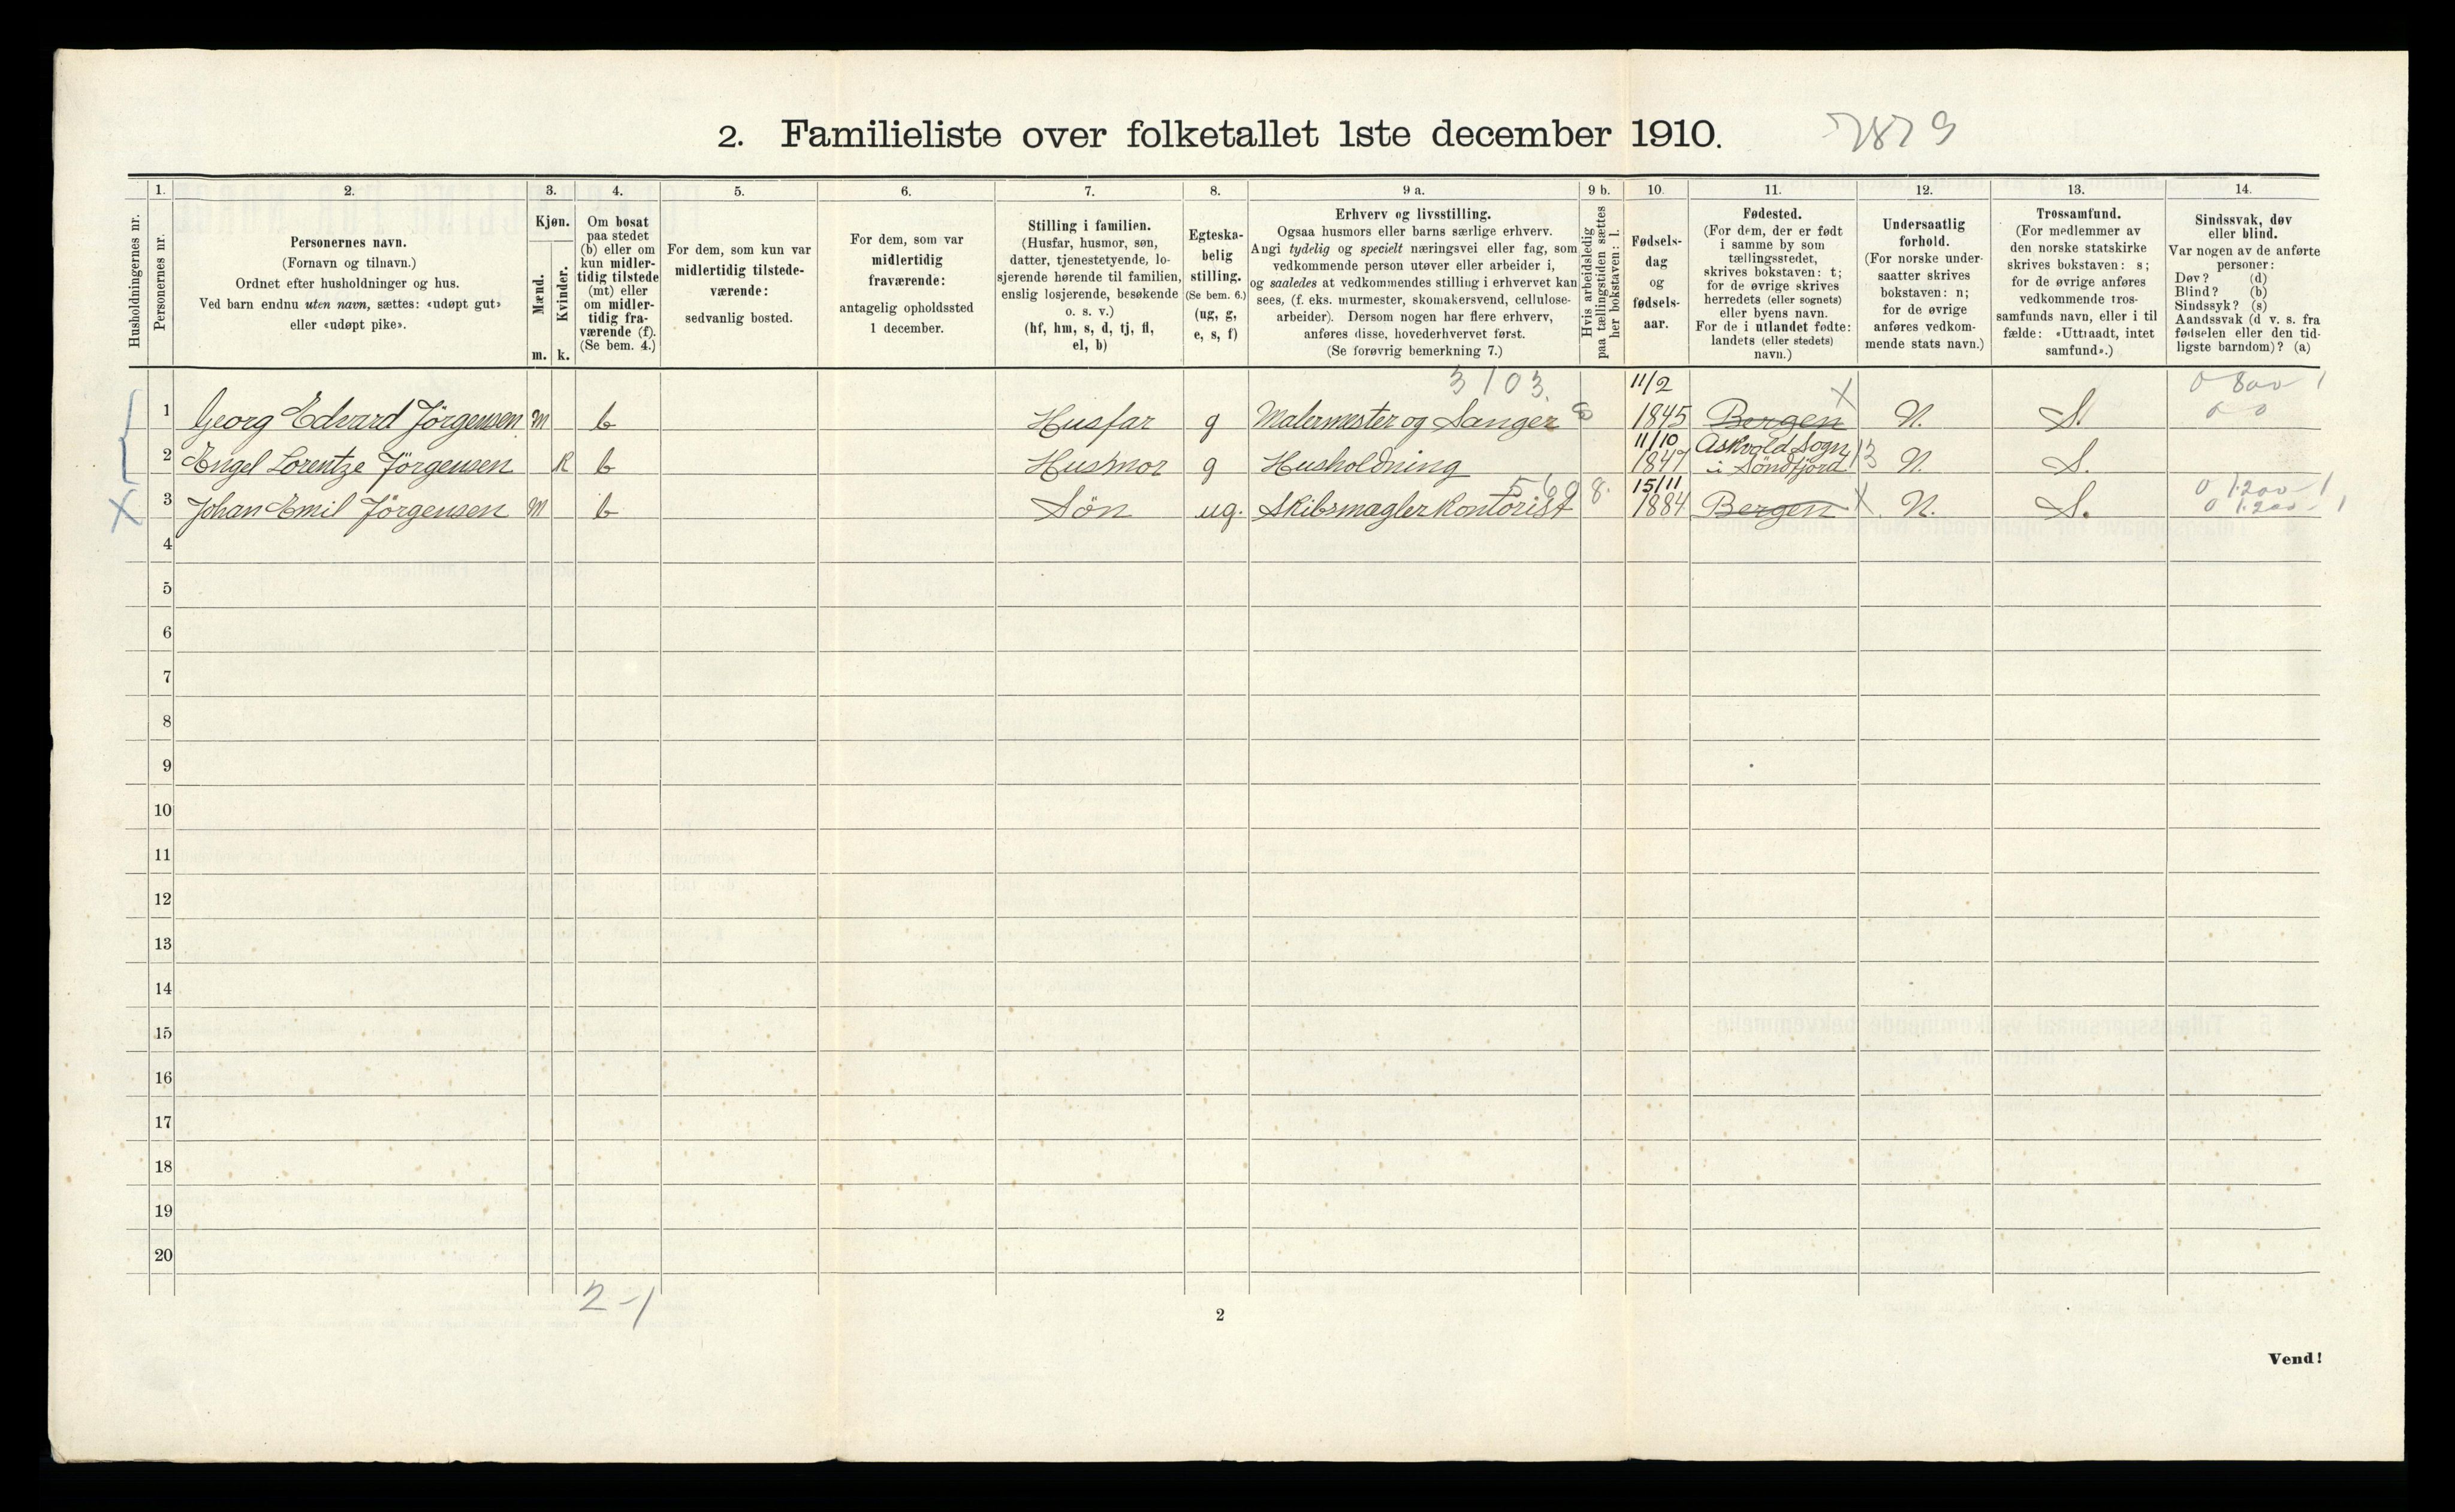 2. Familieliste over folketallet 1ste december 1910.
Husholdningernes nr.
1.
Personernes nr.
2.
Personernes navn.
(Fornavn og tilnavn.)
Ordnet efter husholdninger og hus.
Ved barn endnu uten navn, sættes: «udøpt gut»
eller «udøpt pike».
3.
Kjøn.
Mænd.
m.
Kvinder.
k.
4.
Om bosat
paa stedet
(b) eller om
kun midler-
tidig tilstede
(mt) eller
om midler-
tidig fra-
værende (f).
(Se bem. 4.)
5.
For dem, som kun var
midlertidig tilstede-
værende:
sedvanlig bosted.
6.
For dem, som var
midlertidig
fraværende:
antagelig opholdssted
1 december.
7.
Stilling i familien.
(Husfar, husmor, søn,
datter, tjenestetyende, lo-
sjerende hørende til familien,
enslig losjerende, besøkende
o. s. v.)
(hf, hm, s, d, tj, fl,
el, b)
8.
Egteska-
belig
stilling.
(Se bem. 6.)
(ug, g,
e, s, f)
9 a.
Erhverv og livsstilling.
Ogsaa husmors eller barns særlige erhverv.
Angi tydelig og specielt næringsvei eller fag, som
vedkommende person utøver eller arbeider i,
og saaledes at vedkommendes stilling i erhvervet kan
sees, (f. eks. murmester, skomakersvend, cellulose-
arbeider). Dersom nogen har flere erhverv,
anføres disse, hovederhvervet først.
(Se forøvrig bemerkning 7.)
9 b.
Hvis arbeidsledig
paa tællingstiden sættes
her bokstaven: l.
10.
Fødsels-
dag
og
fødsels-
aar.
11.
Fødested.
(For dem, der er født
i samme by som
tællingsstedet,
skrives bokstaven: t;
for de øvrige skrives
herredets (eller sognets)
eller byens navn.
For de i utlandet fødte:
landets (eller stedets)
navn.)
12.
Undersaatlig
forhold.
(For norske under-
saatter skrives
bokstaven: n;
for de øvrige
anføres vedkom-
mende stats navn.)
13.
Trossamfund.
(For medlemmer av
den norske statskirke
skrives bokstaven: s;
for de øvrige anføres
vedkommende tros-
samfunds navn, eller i til
fælde: «Uttraadt, intet
samfund».)
14.
Sindssvak, døv
eller blind.
Var nogen av de anførte
personer:
Døv? (d)
Blind? (b)
Sindssyk? (s)
Aandssvak (d v. s. fra
fødselen eller den tid-
ligste barndom)? (a)
3103. 11/2 0 800 1
1 Georg Edvard Jörgensen m b Husfar g Malermester og Sanger 1845 Bergen X N. S. 0 0
11/10 Askvold Sogn
2 Engel Lorentze Jörgensen K b Husmor g Husholdning 1847 i Söndfjord 13 N. S.
560 8. 15/11 0 1.200 1
X 3 Johan Emil Jörgensen m b Sön ug. Skibsmæglerkontorist 1884 Bergen X N. S. 0 1.200 1
4
5
6
7
8
9
10
11
12
13
14
15
16
17
18
19
20
2-1
2
Vend!